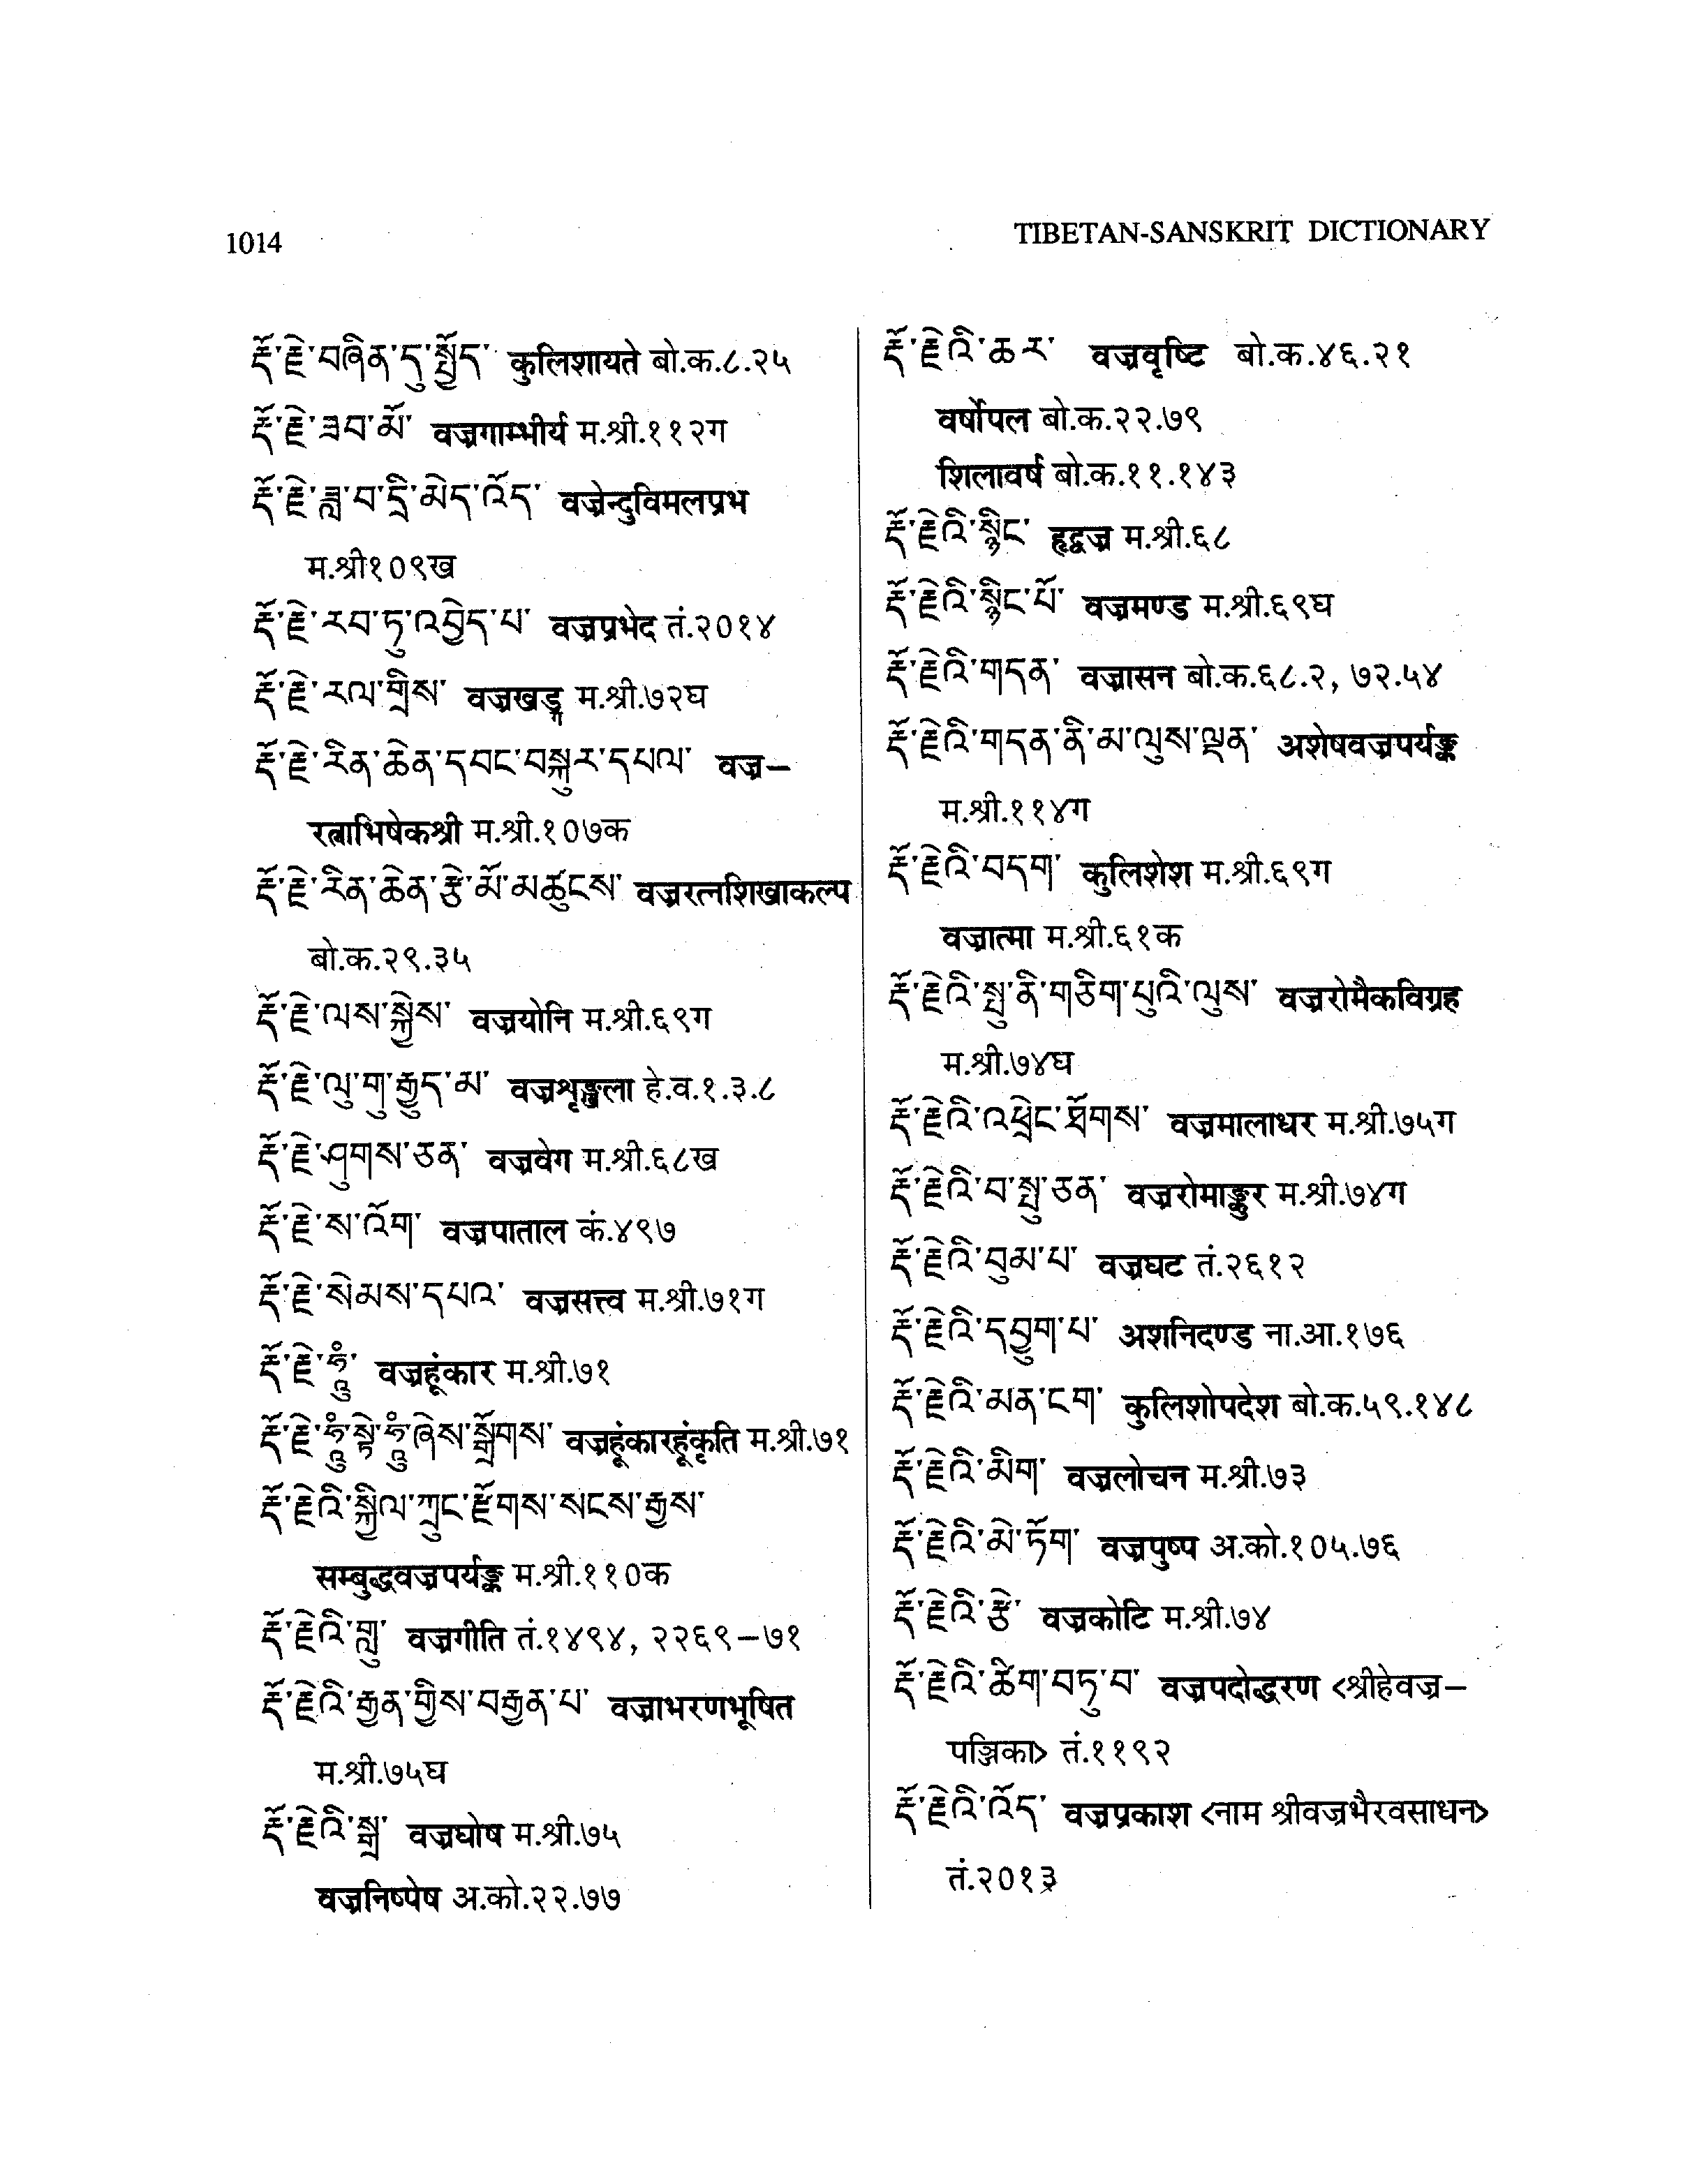 1014
TIBETAN-SANSKRIT DICTIONARY
རྡོ་རྗེ་བཞིན་དུ་སྤྱོད་ कुलिशायते बो.क.८.२५
རྡོ་རྗེ་ཟབ་མོ་ वज्रगाम्भीर्य म.श्री.११२ग
རྡོ་རྗེ་ཟླ་བ་དྲི་མེད་འོད་ वज्रेन्दुविमलप्रभ
म.श्री१०९ख
རྡོ་རྗེ་རབ་ཏུ་འབྱེད་པ་ वज्रप्रभेद तं.२०१४
རྡོ་རྗེ་རལ་གྲིས་ वज्रखड्ग म.श्री.७२घ
རྡོ་རྗེ་རིན་ཆེན་དབང་བསྐུར་དཔལ་ वज्र–
रत्नाभिषेकश्री म.श्री.१०७क
རྡོ་རྗེ་རིན་ཆེན་རྩེ་མོ་མཚུངས་ वज्ररत्नशिखाकल्प
बो.क.२९.३५
རྡོ་རྗེ་ལས་སྐྱེས་ वज्रयोनि म.श्री.६९ग
རྡོ་རྗེ་ལུ་གུ་རྒྱུད་མ་ वज्रशृङ्खला हे.व.१.३.८
རྡོ་རྗེ་ཤུགས་ཅན་ वज्रवेग म.श्री.६८ख
རྡོ་རྗེ་ས་འོག་ वज्रपाताल कं.४९७
རྡོ་རྗེ་སེམས་དཔའ་ वज्रसत्त्व म.श्री.७१ग
རྡོ་རྗེ་ཧཱུྃ་ वज्रहूंकार म.श्री.७१
རྡོ་རྗེ་ཧཱུྃ་སྟེ་ཧཱུྃ་ཞེས་སྒྲོགས་ वज्रहूंकारहूंकृति म.श्री.७१
རྡོ་རྗེའི་སྐྱིལ་ཀྲུང་རྫོགས་སངས་རྒྱས་
सम्बुद्धवज्रपर्यङ्क म.श्री.११०क
རྡོ་རྗེའི་གླུ་ वज्रगीति तं.१४९४, २२६९–७१
རྡོ་རྗེའི་རྒྱན་གྱིས་བརྒྱན་པ་ वज्राभरणभूषित
म.श्री.७५घ
རྡོ་རྗེའི་སྒྲ་ वज्रघोष म.श्री.७५
वज्रनिष्पेष अ.को.२२.७७
རྡོ་རྗེའི་ཆར་ वज्रवृष्टि बो.क.४६.२१
वर्षोपल बो.क.२२.७९
शिलावर्ष बो.क.११.१४३
རྡོ་རྗེའི་སྙིང་ हृद्वज्र म.श्री.६८
རྡོ་རྗེའི་སྙིང་པོ་ वज्रमण्ड म.श्री.६९घ
རྡོ་རྗེའི་གདན་ वज्रासन बो.क.६८.२, ७२.५४
རྡོ་རྗེའི་གདན་ནི་མ་ལུས་ལྡན་ अशेषवज्रपर्यङ्क
म.श्री.११४ग
རྡོ་རྗེའི་བདག་ कुलिशेश म.श्री.६९ग
वज्रात्मा म.श्री.६१क
རྡོ་རྗེའི་སྤུ་ནི་གཅིག་པུའི་ལུས་ वज्ररोमैकविग्रह
म.श्री.७४घ
རྡོ་རྗེའི་འཕྲེང་ཐོགས་ वज्रमालाधर म.श्री.७५ग
རྡོ་རྗེའི་བ་སྤུ་ཅན་ वज्ररोमाङ्कुर म.श्री.७४ग
རྡོ་རྗེའི་བུམ་པ་ वज्रघट तं.२६१२
རྡོ་རྗེའི་དབྱུག་པ་ अशनिदण्ड ना.आ.१७६
རྡོ་རྗེའི་མན་ངག་ कुलिशोपदेश बो.क.५९.१४८
རྡོ་རྗེའི་མིག་ वज्रलोचन म.श्री.७३
རྡོ་རྗེའི་མེ་ཏོག་ वज्रपुष्प अ.को.१०५.७६
རྡོ་རྗེའི་རྩེ་ वज्रकोटि म.श्री.७४
རྡོ་རྗེའི་ཚིག་བཏུ་བ་ वज्रपदोद्धरण <श्रीहेवज्र–
पञ्जिका> तं.११९२
རྡོ་རྗེའི་འོད་ वज्रप्रकाश <नाम श्रीवज्रभैरवसाधन>
तं.२०१३